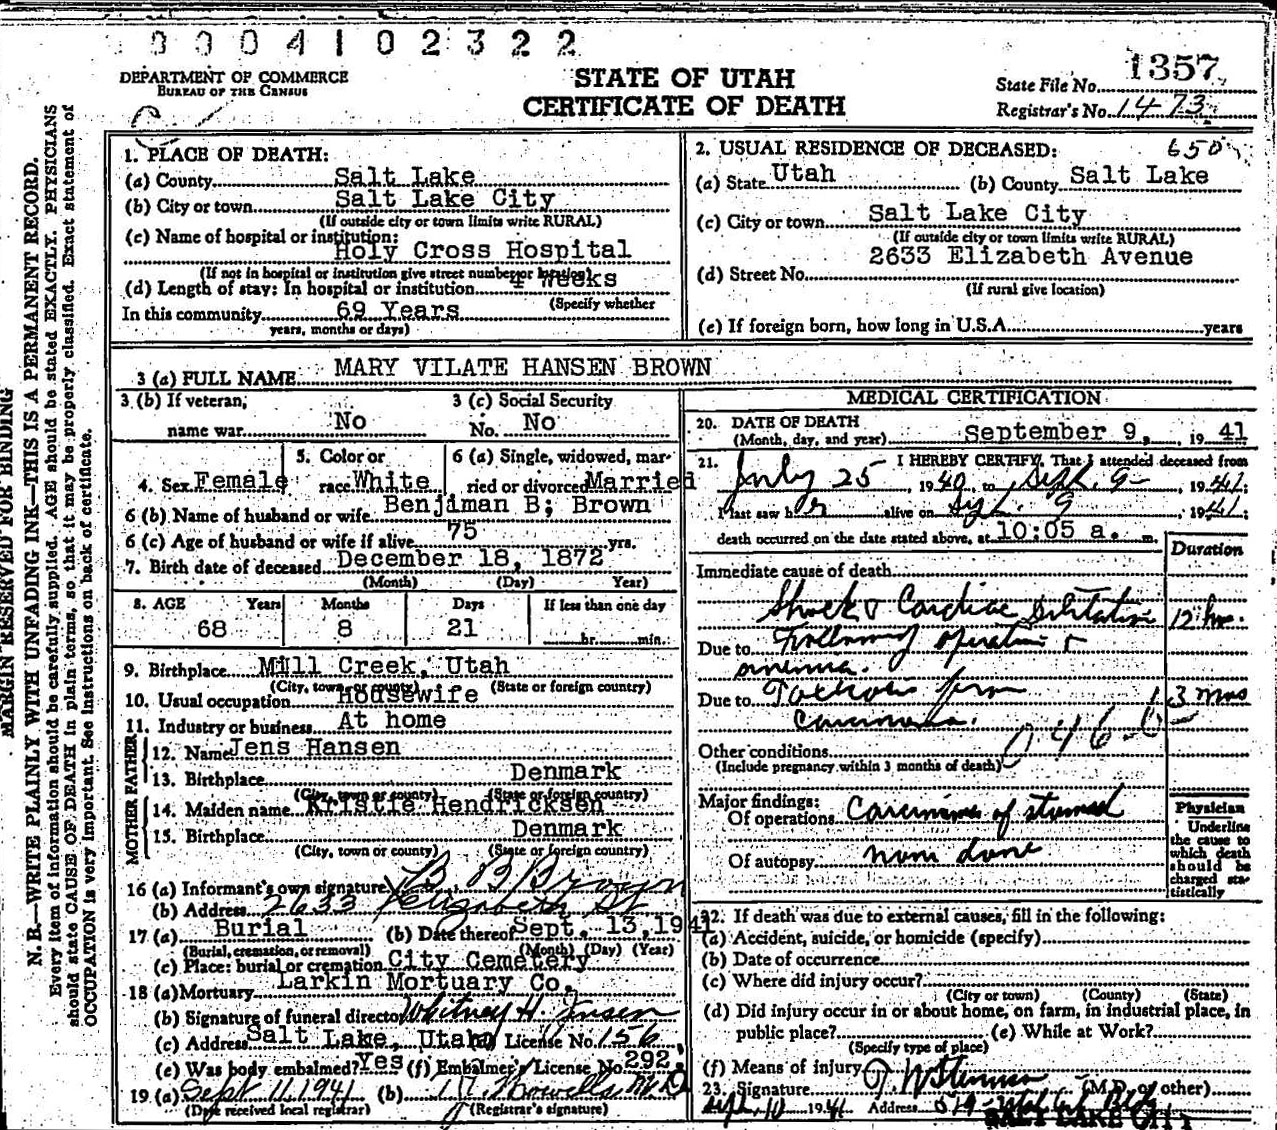 0004102322
DEPARTMENT OF COMMERCE
BUREAU OF THE CENSUS
STATE OF UTAH
CERTIFICATE OF DEATH
State File No. 1357
Registrar's No. 1473
MARGIN RESERVED FOR BINDING
N. B.—WRITE PLAINLY WITH UNFADING INK—THIS IS A PERMANENT RECORD.
Every item of information should be carefully supplied. AGE should be stated EXACTLY. PHYSICIANS
should state CAUSE OF DEATH in plain terms, so that it may be properly classified. Exact statement of
OCCUPATION is very important. See instructions on back of certificate.
1. PLACE OF DEATH:
(a) County Salt Lake
(b) City or town Salt Lake City
(If outside city or town limits write RURAL)
(c) Name of hospital or institution:
Holy Cross Hospital
(If not in hospital or institution give street number or location)
(d) Length of stay: In hospital or institution 4 weeks
(Specify whether
In this community 69 Years
years, months or days)
2. USUAL RESIDENCE OF DECEASED: 650
(a) State Utah (b) County Salt Lake
(c) City or town Salt Lake City
(If outside city or town limits write RURAL)
2633 Elizabeth Avenue
(d) Street No.
(If rural give location)
(e) If foreign born, how long in U.S.A. years
3 (a) FULL NAME MARY VILATE HANSEN BROWN
3 (b) If veteran,
name war No
3 (c) Social Security
No. No
4. Sex Female
5. Color or
race White
6 (a) Single, widowed, mar-
ried or divorced Married
6 (b) Name of husband or wife Benjiman B; Brown
6 (c) Age of husband or wife if alive 75 yrs.
7. Birth date of deceased December 18, 1872
(Month) (Day) Year)
8. AGE Years Months Days If less than one day
68 8 21 hr. min.
9. Birthplace Mill Creek, Utah
(City, town or county) (State or foreign country)
10. Usual occupation Housewife
11. Industry or business At home
FATHER
12. Name Jens Hansen
13. Birthplace Denmark
(City, town or county) (State or foreign country)
MOTHER
14. Maiden name Kristie Hendricksen
15. Birthplace Denmark
(City, town or county) (State or foreign country)
16 (a) Informant's own signature B B Brown
(b) Address 2633 Elizabeth St
17 (a) Burial (b) Date thereof Sept. 13, 1941
(Burial, cremation, or removal) (Month) (Day) (Year)
(c) Place: burial or cremation City Cemetery
18 (a) Mortuary Larkin Mortuary Co.
(b) Signature of funeral director Whitney H. Jensen
(c) Address Salt Lake, Utah License No. 156
(e) Was body embalmed? Yes (f) Embalmer's License No. 292
19 (a) Sept 11, 1941 (b) Howells M.D
(Date received local registrar) (Registrar's signature)
MEDICAL CERTIFICATION
20. DATE OF DEATH
(Month, day, and year) September 9, 1941
21. I HEREBY CERTIFY, That I attended deceased from
July 25, 1940, to Sept. 9, 1941;
I last saw her alive on Sept. 9, 1941;
death occurred on the date stated above, at 10:05 a. m.
Duration
Immediate cause of death
Shock & Cardiac Dilitation 12 hrs.
Due to Following operation &
anemia.
Due to from 3 mos
carcinoma.
046-b
Other conditions
(Include pregnancy within 3 months of death)
Major findings:
Of operations Carcinoma of stomach
Of autopsy none done
Physician
Underline
the cause to
which death
should be
charged sta-
tistically
22. If death was due to external causes, fill in the following:
(a) Accident, suicide, or homicide (specify)
(b) Date of occurrence
(c) Where did injury occur?
(City or town) (County) (State)
(d) Did injury occur in or about home, on farm, in industrial place, in
public place? (e) While at Work?
(Specify type of place)
(f) Means of injury
23. Signature (M.D. or other)
Sept. 10 1941 Address
SALT LAKE CITY